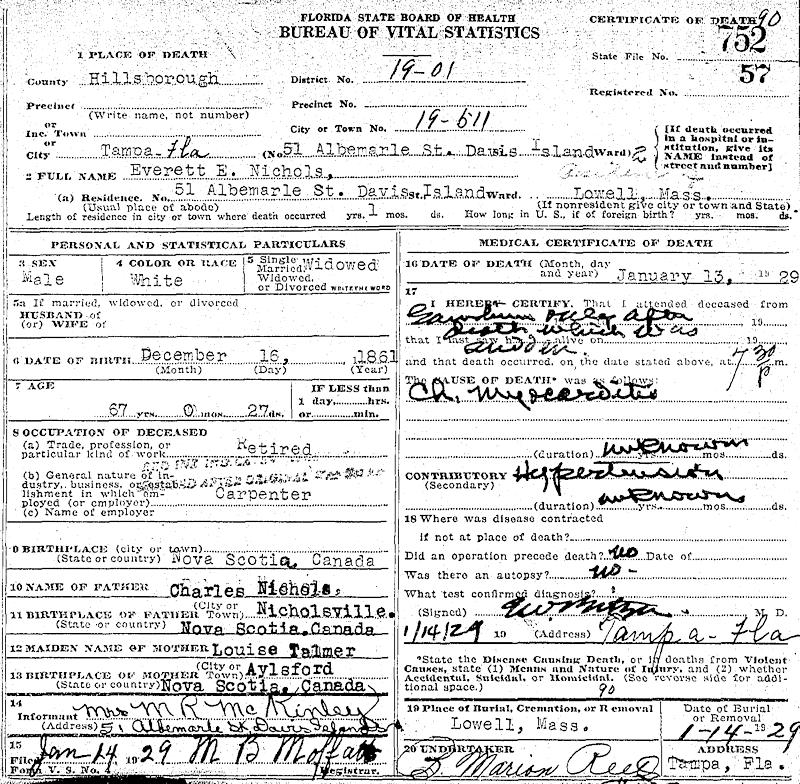 FLORIDA STATE BOARD OF HEALTH
BUREAU OF VITAL STATISTICS
CERTIFICATE OF DEATH 90
State File No. 752
57
Registered No.
1 PLACE OF DEATH
County Hillsborough
District No. 19-01
Precinct
(Write name, not number)
Precinct No.
or
Inc. Town
City or Town No. 19-511
or
City Tampa-Fla (No. 51 Albemarle St. Davis Island Ward) 2
[If death occurred in a hospital or institution, give its NAME instead of street and number]
2 FULL NAME Everett E. Nichols,
(a) Residence. No. 51 Albemarle St. Davis St. Island Ward. Lowell, Mass.
(Usual place of abode) (If nonresident give city or town and State)
Length of residence in city or town where death occurred yrs. 1 mos. ds. How long in U. S., if of foreign birth? yrs. mos. ds.
PERSONAL AND STATISTICAL PARTICULARS
3 SEX Male
4 COLOR OR RACE White
5 Single, Married, Widowed, or Divorced WRITE THE WORD Widowed
5a If married, widowed, or divorced
HUSBAND of
(or) WIFE of
6 DATE OF BIRTH December 16, 1861
(Month) (Day) (Year)
7 AGE
67 yrs. 0 mos. 27 ds.
IF LESS than
1 day,....hrs.
or....min.
8 OCCUPATION OF DECEASED
(a) Trade, profession, or
particular kind of work Retired
(b) General nature of in-
dustry, business, or estab-
lishment in which em-
ployed (or employer) Carpenter
(c) Name of employer
9 BIRTHPLACE (city or town)
(State or country) Nova Scotia, Canada
10 NAME OF FATHER Charles Nichols,
11 BIRTHPLACE OF FATHER (City or Town) Nicholsville.
(State or country) Nova Scotia. Canada
12 MAIDEN NAME OF MOTHER Louise Talmer
13 BIRTHPLACE OF MOTHER (City or Town) Aylsford
(State or country) Nova Scotia, Canada
14
Informant Mrs M R McKinley
(Address) 51 Albemarle St. Davis Islands
15
Filed Jan 14 1929 M B Moffatt
Form V. S. No. 4 Registrar.
MEDICAL CERTIFICATE OF DEATH
16 DATE OF DEATH (Month, day and year) January 13, 19 29
17
I HEREBY CERTIFY, That I attended deceased from
Saw him only after 19
death which was
that I last saw h alive on 19
sudden.
and that death occurred, on the date stated above, at 7 30 P m.
The CAUSE OF DEATH* was as follows:
Ch. Myocarditis
(duration) unknown yrs. mos. ds.
CONTRIBUTORY Hypertension
(Secondary)
(duration) unknown yrs. mos. ds.
18 Where was disease contracted
if not at place of death?
Did an operation precede death? no Date of
Was there an autopsy? no -
What test confirmed diagnosis?
(Signed) M. D.
1/14/29 19 (Address) Tampa - Fla
*State the Disease Causing Death, or in deaths from Violent
Causes, state (1) Means and Nature of Injury, and (2) whether
Accidental, Suicidal, or Homicidal. (See reverse side for addi-
tional space.)
90
19 Place of Burial, Cremation, or Removal
Lowell, Mass.
Date of Burial or Removal
1-14-1929
20 UNDERTAKER
B Marion Reed
ADDRESS
Tampa, Fla.